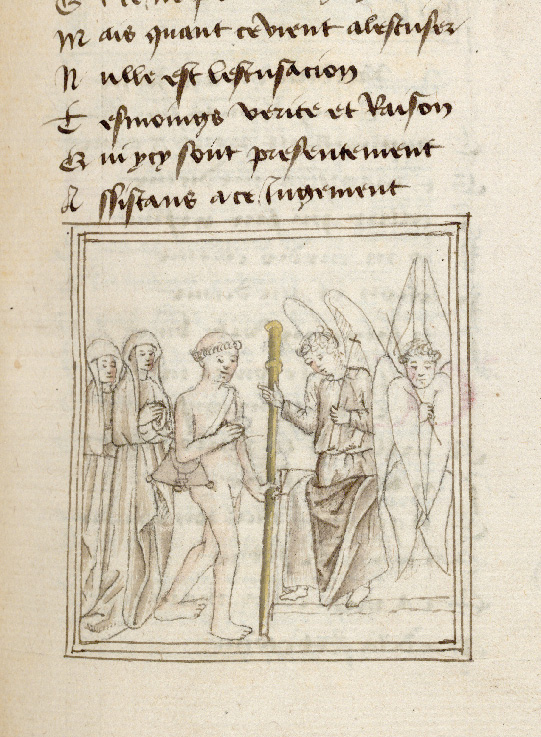 M ais quant ce vient a lescuser
N ulle est lescusacion
T esmoings verite et Raison
Q ui ycy sont presentement
A ssistans a ce Iugement